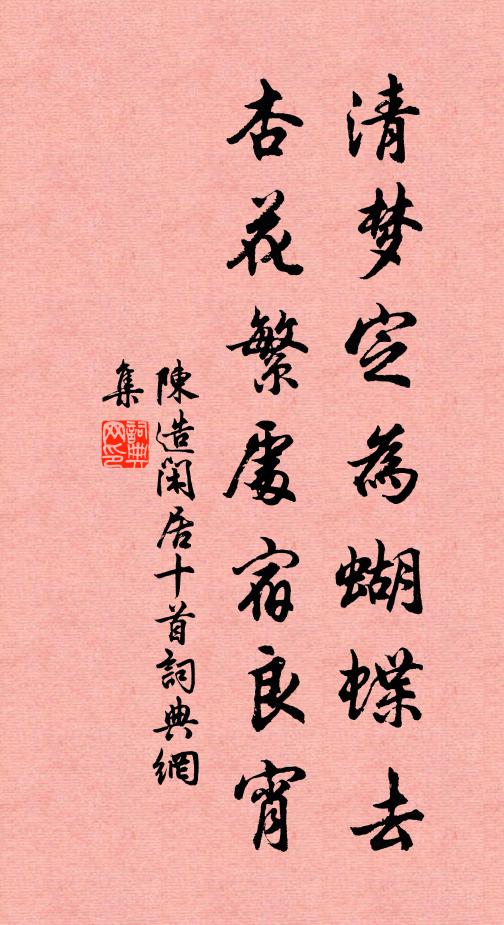 清梦定為蝴蝶去
杏花繁處宿良宵
陳造閑居十首詞典網
集
詞典网印